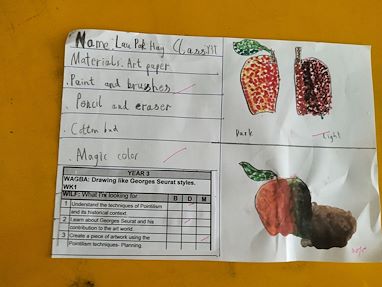 Name: Lau Pak Hay Class
Materials. Art paper
. Paint and brushes
. Pencil and eraser
. Cotten bud
. Magic color
YEAR 3
WAGBA: Drawing like Georges Seurat styles.
WK1
WILF: What I'm looking for B D M
1 Understand the techniques of Pointilism
and its historical context
2 Learn about Georges Seurat and his
contribution to the art world.
3 Create a piece of artwork using the
Pointilism techniques- Planning
Dark
Light